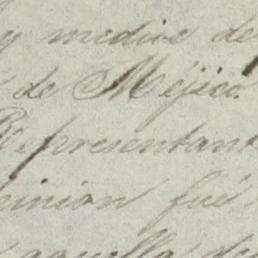 y medios de
de Méjico.
Representant
pinion fué
aquella de